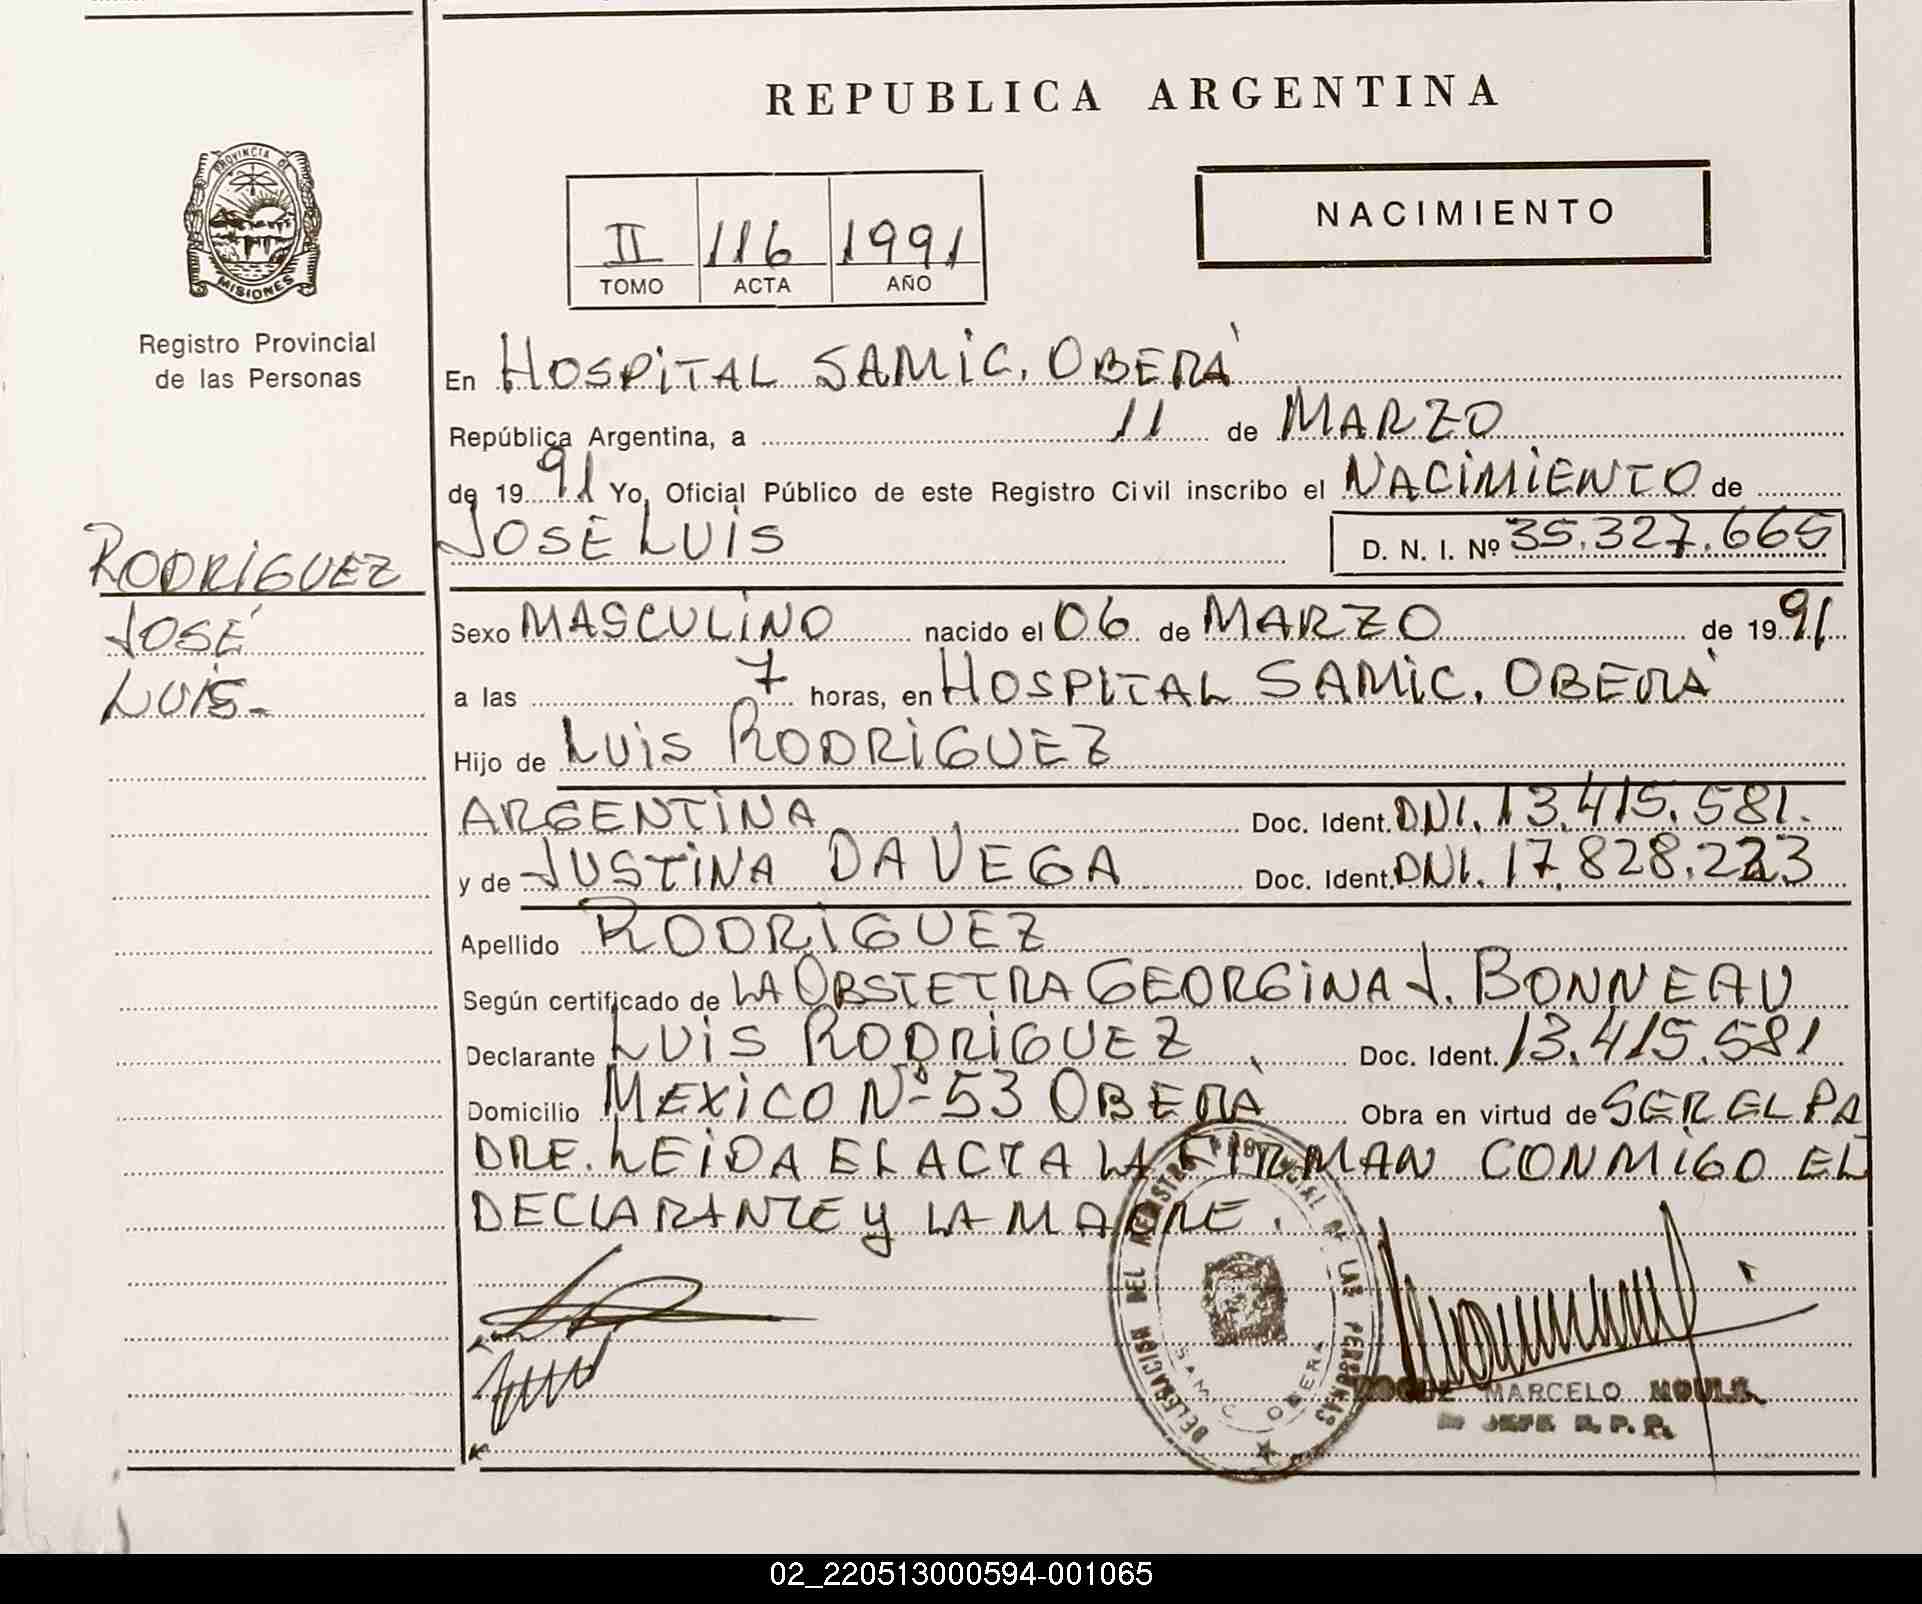 REPUBLICA ARGENTINA
PROVINCIA DE
MISIONES
Registro Provincial
de las Personas
II 116 1991
TOMO ACTA AÑO
NACIMIENTO
En HOSPITAL SAMIC. OBERÁ
República Argentina, a 11 de MARZO
de 1991 Yo, Oficial Público de este Registro Civil inscribo el NACIMIENTO de
JOSÉ LUIS D. N. I. Nº 35.327.665
RODRIGUEZ
JOSÉ
LUIS.-
Sexo MASCULINO nacido el 06 de MARZO de 1991
a las 7 horas, en HOSPITAL SAMIC. OBERÁ
Hijo de LUIS RODRIGUEZ
ARGENTINA Doc. Ident. DNI. 13.415.581.
y de JUSTINA DAVEGA Doc. Ident. DNI. 17.828.223
Apellido RODRIGUEZ
Según certificado de LA OBSTETRA GEORGINA J. BONNEAU
Declarante LUIS RODRIGUEZ Doc. Ident. 13.415.581
Domicilio MEXICO Nº 53 OBERÁ Obra en virtud de SER EL PA
DRE. LEIDA EL ACTA LA FIRMAN CONMIGO EL
DECLARANTE Y LA MADRE.
DELEGACION DEL REGISTRO PROVINCIAL DE LAS PERSONAS
SAMIC OBERA
MARCELO
JEFE R. P. P.
02_220513000594-001065